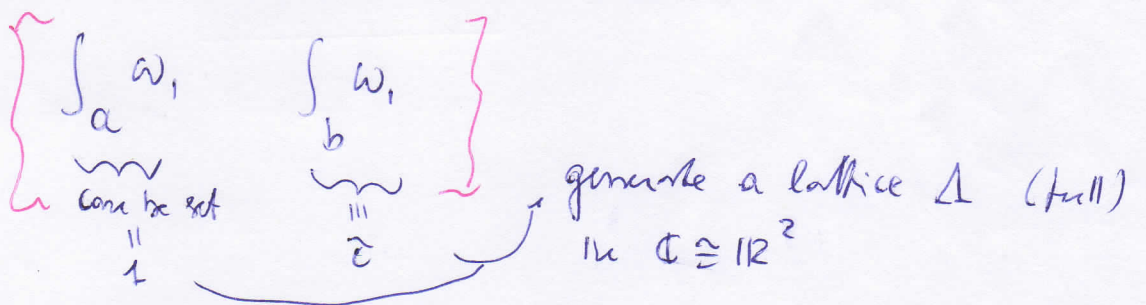 ∫_a ω₁ ∫_b ω₁
can be set generate a lattice Λ (full)
= ≡ in ℂ ≅ ℝ²
1 τ